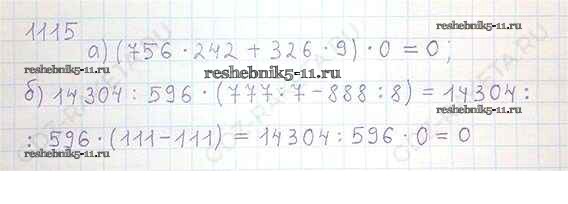 1115
а) (756 · 242 + 326 · 9) · 0 = 0;
reshebnik5-11.ru
reshebnik5-11.ru
reshebnik5-11.ru
б) 14304 : 596 · (777 : 7 − 888 : 8) = 14304 :
: 596 · (111 − 111) = 14304 : 596 · 0 = 0
reshebnik5-11.ru
reshebnik5-11.ru